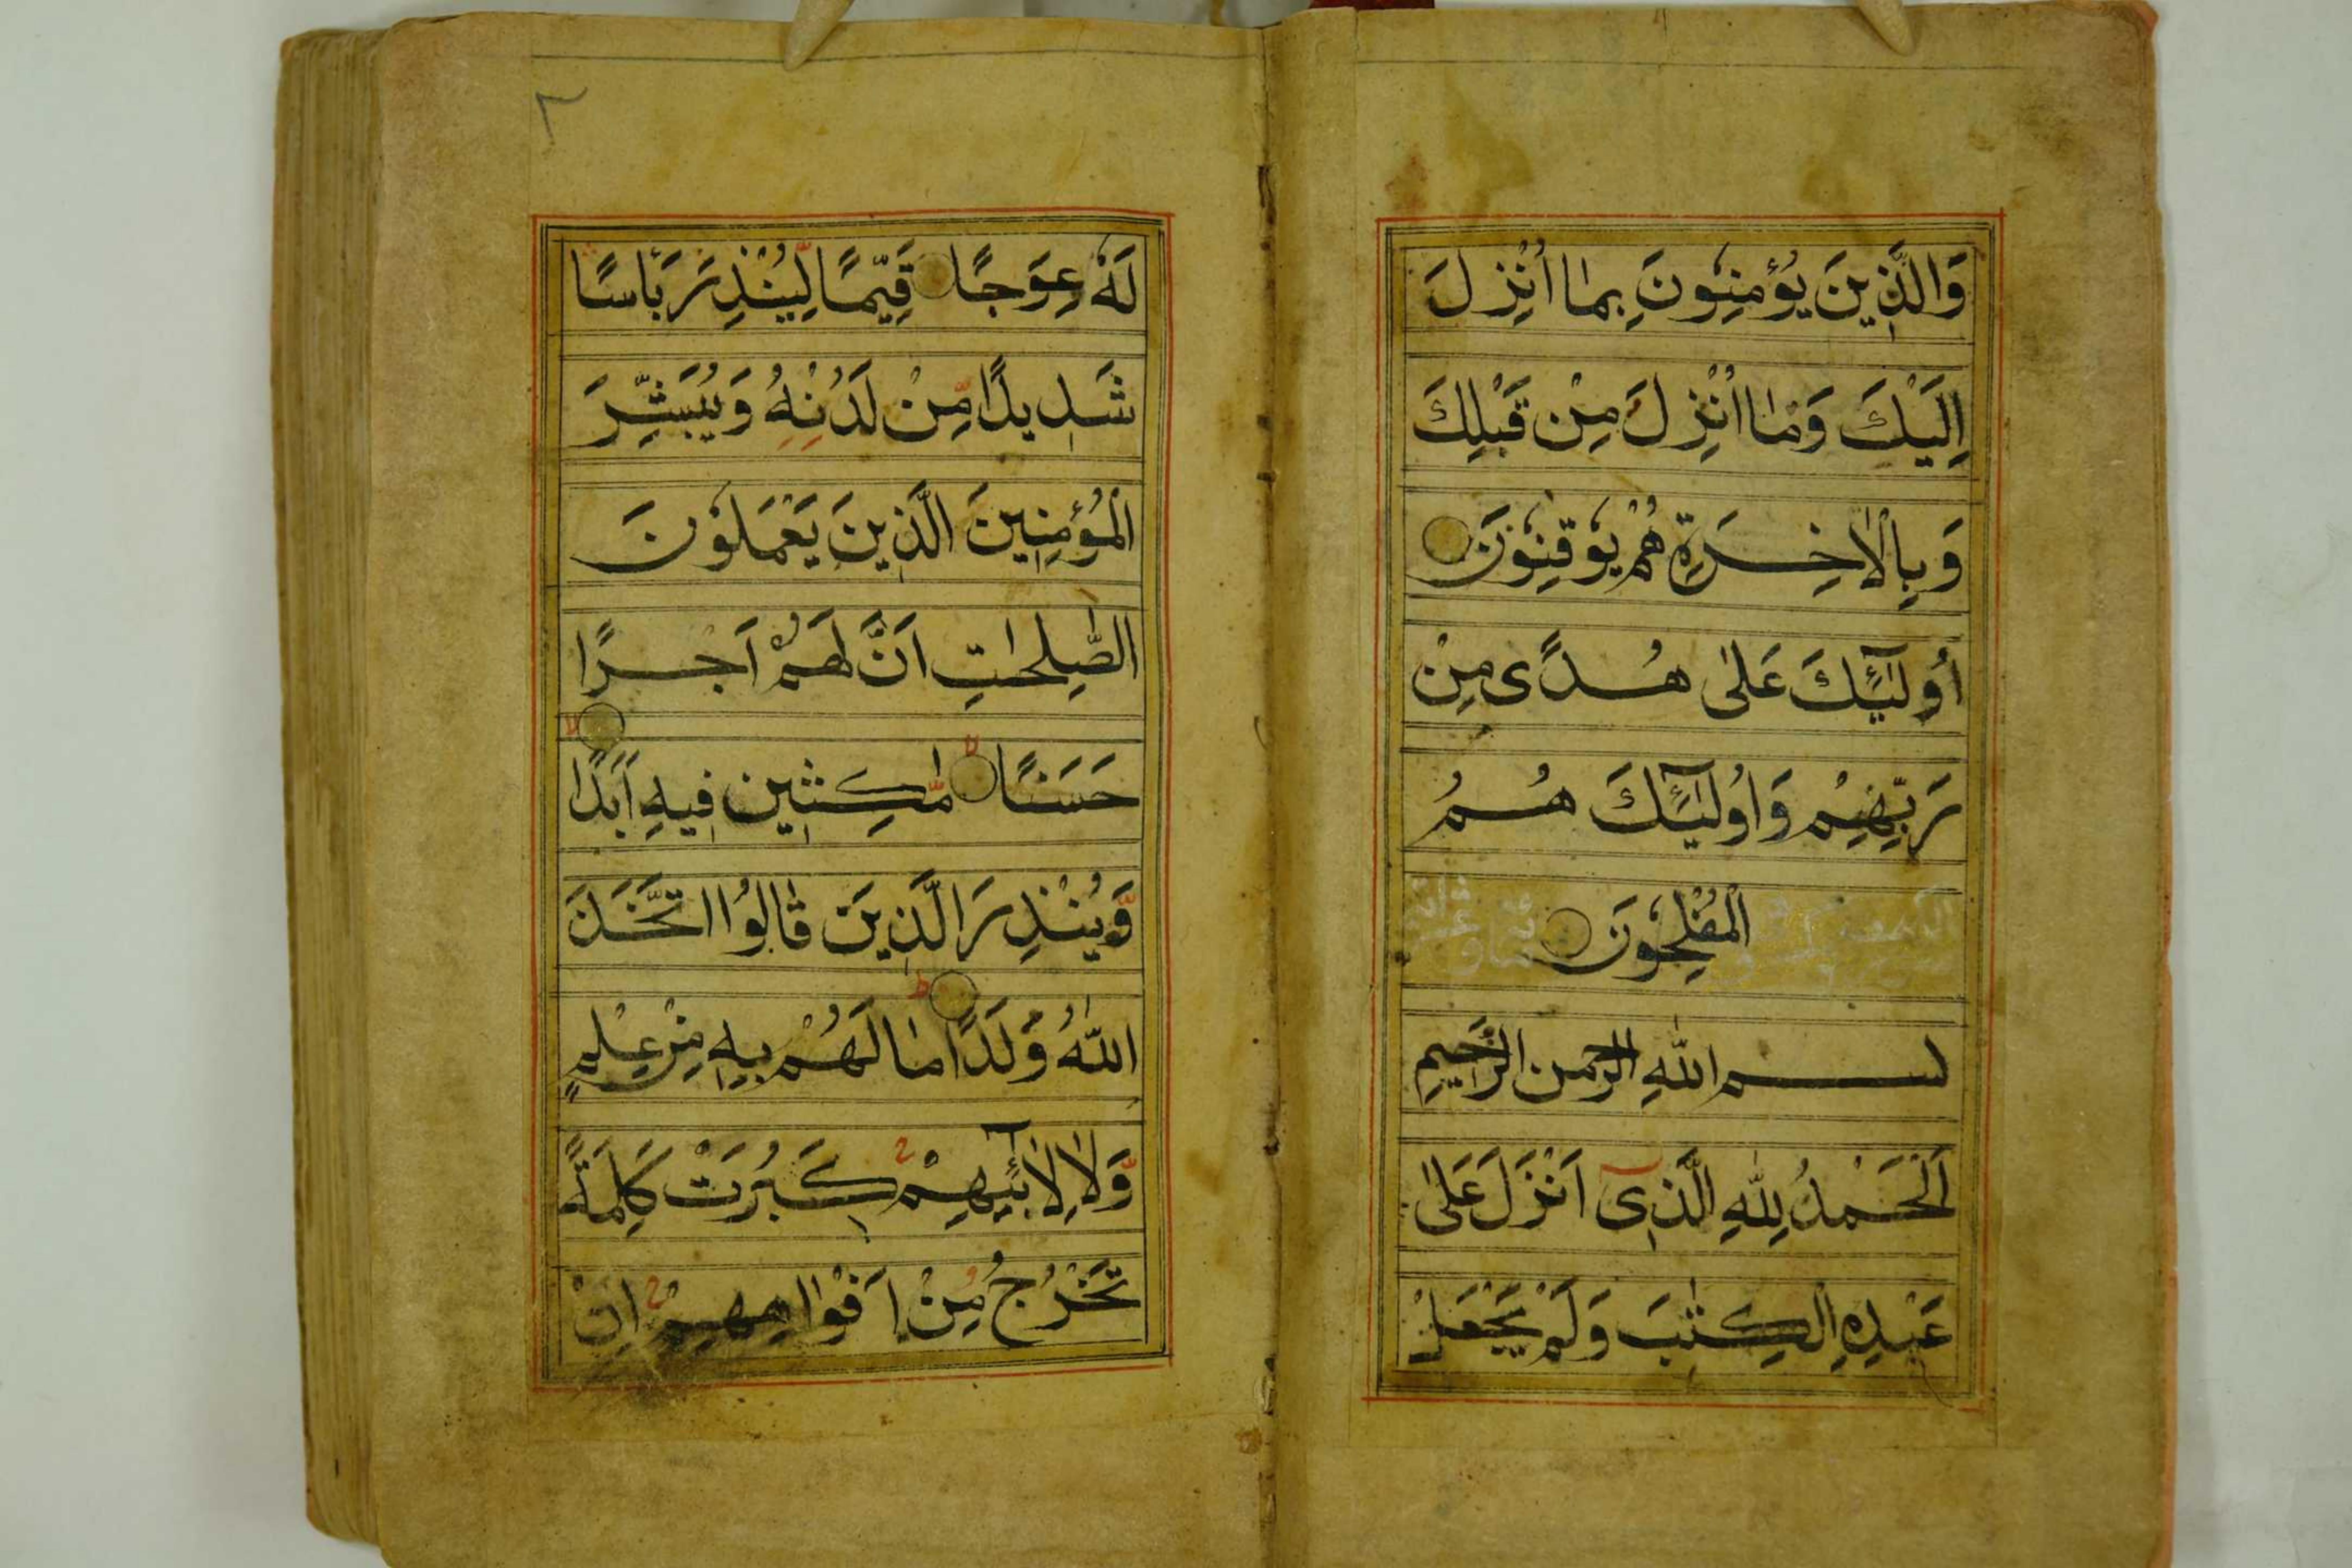 وَالَّذِينَ يُؤْمِنُونَ بِمَا اُنْزِلَ
اِلَيْكَ وَمَا اُنْزِلَ مِنْ قَبْلِكَ
وَبِالْاٰخِرَةِ هُمْ يُوْقِنُوْنَ
اُولٰٓئِكَ عَلٰى هُدًى مِنْ
رَبِّهِمْ وَاُولٰٓئِكَ هُمُ
الْمُفْلِحُوْنَ
بسم اللّٰهِ الرحمن الرَّحِيمِ
اَلْحَمْدُ لِلّٰهِ الَّذِىٓ اَنْزَلَ عَلٰى
عَبْدِهِ الْكِتٰبَ وَلَمْ يَجْعَلْ
٢
لَهٗ عِوَجًا قَيِّمًا لِّيُنْذِرَ بَاْسًا
شَدِيدًا مِّنْ لَدُنْهُ وَيُبَشِّرَ
الْمُؤْمِنِينَ الَّذِينَ يَعْمَلُوْنَ
الصّٰلِحٰتِ اَنَّ لَهُمْ اَجْرًا
حَسَنًا مّٰكِثِينَ فِيهِ اَبَدًا
وَّيُنْذِرَ الَّذِينَ قَالُوا اتَّخَذَ
اللّٰهُ وَلَدًا مَا لَهُمْ بِهٖ مِنْ عِلْمٍ
وَّلَا لِاٰبَآئِهِمْ كَبُرَتْ كَلِمَةً
تَخْرُجُ مِنْ اَفْوَاهِهِمْ اِنْ